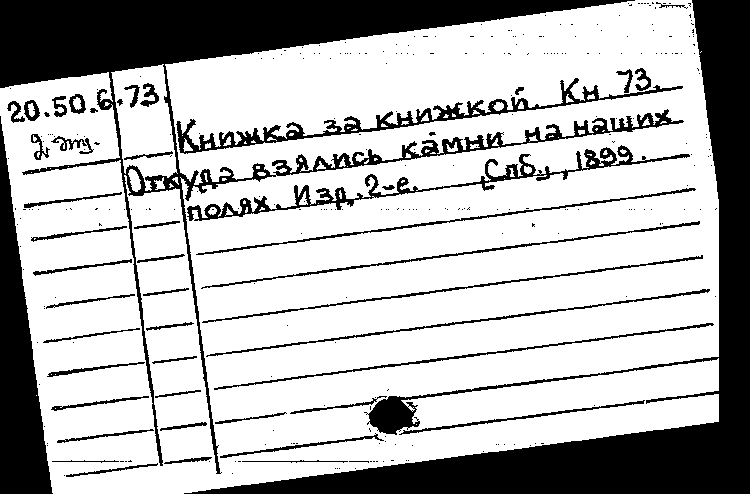 20.50.6.73.
Книжка за книжкой. Кн. 73.
Откуда взялись камни на наших
полях. Изд. 2-е. [Спб.], 1899.